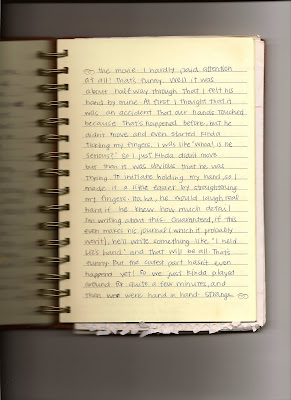 the movie I hardly paid attention
at all! That's funny. Well it was
about halfway through that I felt his
hand by mine. At first I thought that it
was an accident that our hands touched
because that's happened before, but he
didn't move and even started kinda
my fingers. I was like "what! is he
serious?" so I just kinda didn't move
but then it was obvious that he was
trying to initiate holding my hand, so I
made it a little easier by straightening
my fingers. Ha ha, he would laugh real
hard if he knew how much detail
I'm writing about this. Guaranteed, if this
even makes his journal (which it probably
won't), he'll write something like "I held
hand." and that will be all. That's
funny. But the cutest part hasn't even
happened yet! So we just kinda played
around for quite a few minutes, and
then we were hand in hand.